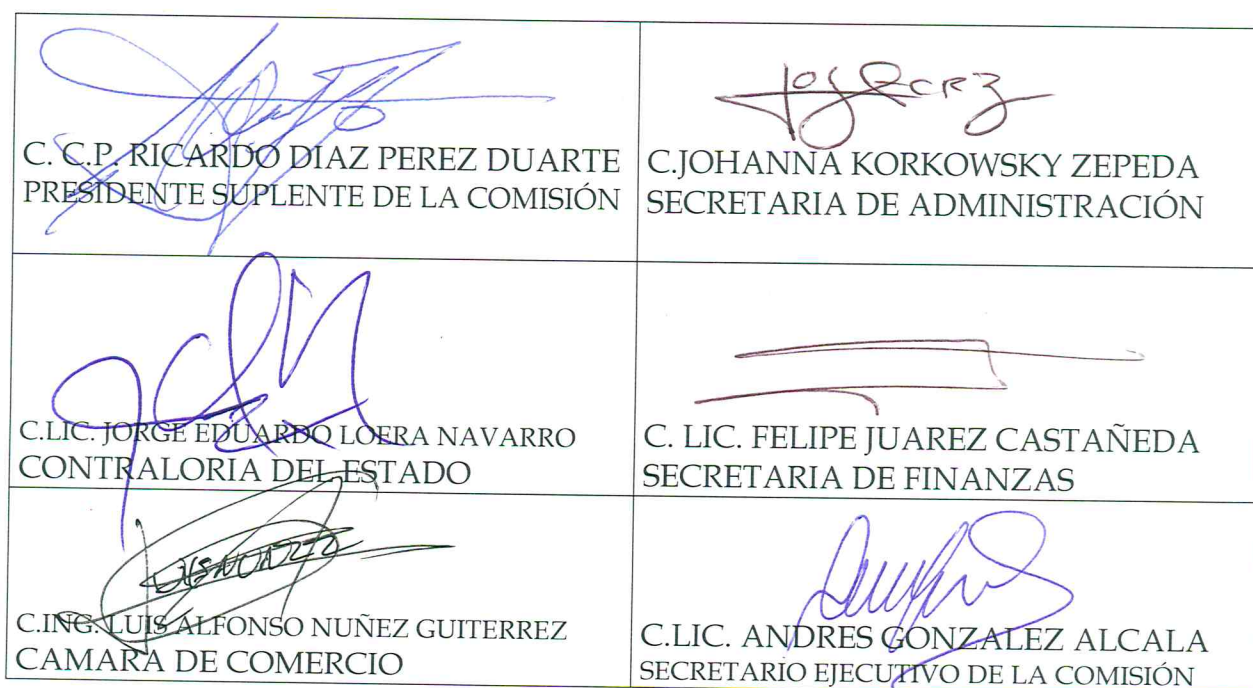 C. C.P. RICARDO DIAZ PEREZ DUARTE
PRESIDENTE SUPLENTE DE LA COMISIÓN
C.JOHANNA KORKOWSKY ZEPEDA
SECRETARIA DE ADMINISTRACIÓN
C.LIC. JORGE EDUARDO LOERA NAVARRO
CONTRALORIA DEL ESTADO
C. LIC. FELIPE JUAREZ CASTAÑEDA
SECRETARIA DE FINANZAS
C.ING. LUIS ALFONSO NUÑEZ GUITERREZ
CAMARA DE COMERCIO
C.LIC. ANDRES GONZALEZ ALCALA
SECRETARIO EJECUTIVO DE LA COMISIÓN